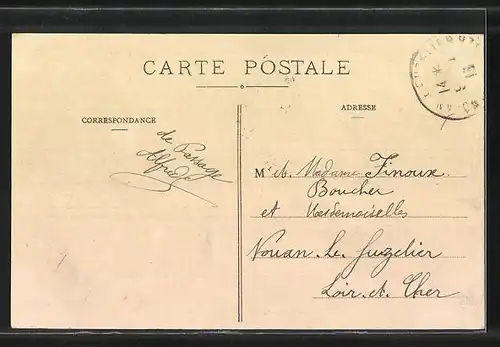 CARTE POSTALE
CORRESPONDANCE
ADRESSE
de Passage
Alfred
Mr et Madame Finoux
Boucher
et Mesdemoiselles
Nouan. le. Fuzelier
Loir. et. Cher